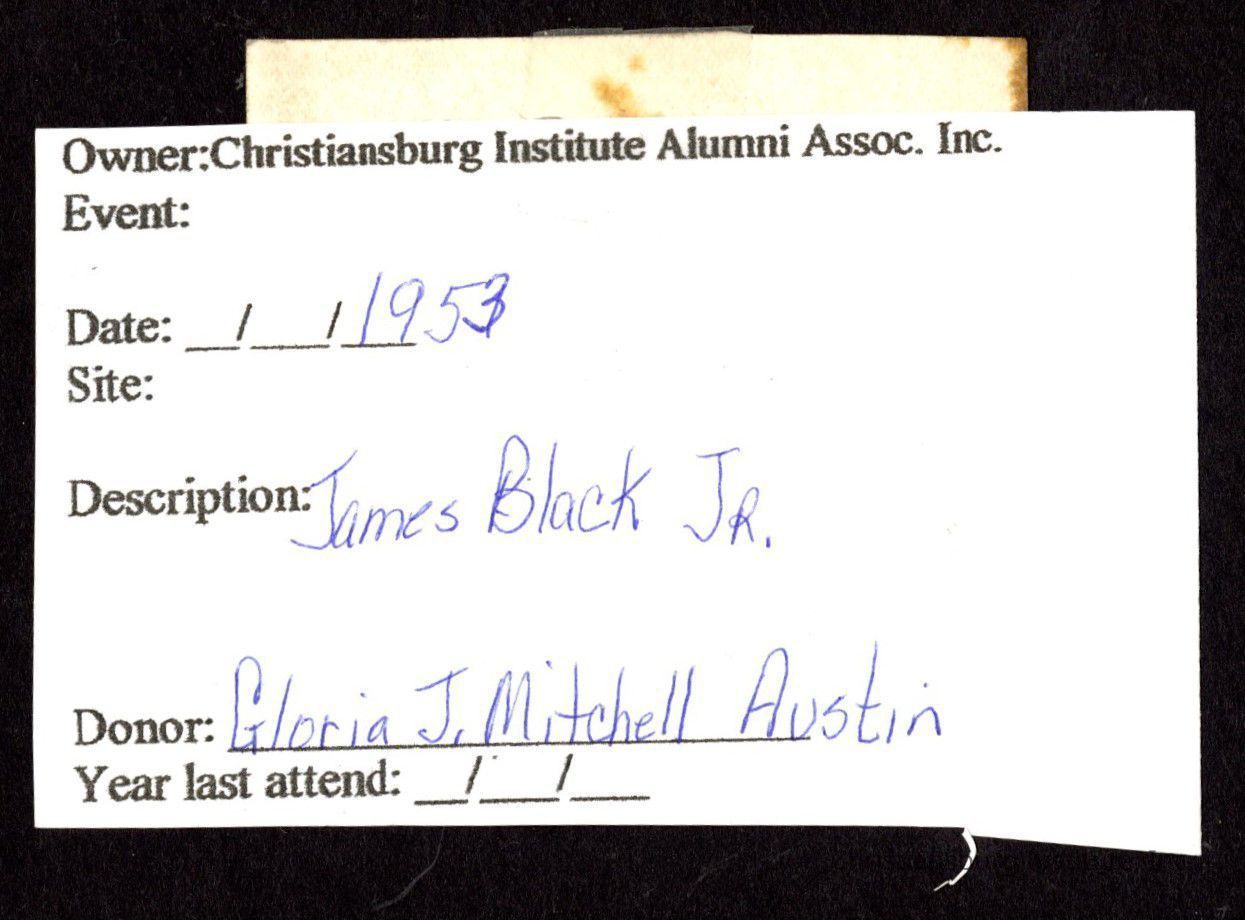 Owner:Christiansburg Institute Alumni Assoc. Inc.
Event:
Date: __/___/1953
Site:
Description: James Black JR.
Donor: Gloria J. Mitchell Austin
Year last attend: __/___/___